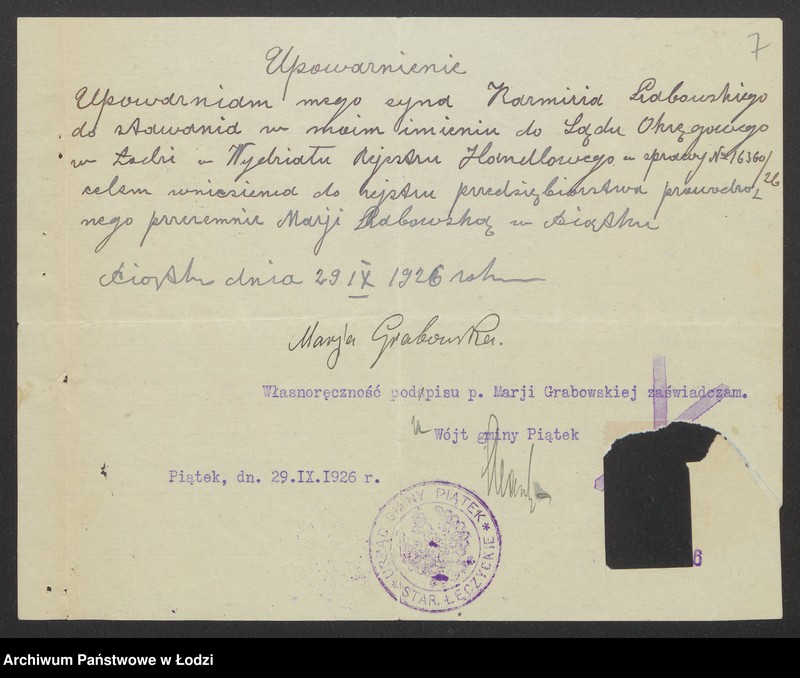 7
Upoważnienie
Upoważniam mego syna Kazimirza Grabowskiego
do stawania w moim imieniu do Sądu Okręgowego
w Łodzi w Wydziału Rejstru Handlowego w sprawy № 16360/26
celem wniesienia do rejstru przedsiębiorstwa prowadzo
nego przezemnie Marji Grabowską w Piątku
Piątek dnia 29 IX 1926 roku
Marja Grabowska.
Własnoręczność podpisu p. Marji Grabowskiej zaświadczam.
Wójt gminy Piątek
Piątek, dn. 29.IX.1926 r.
URZĄD GMINY PIĄTEK * STAR. ŁĘCZYCKIE *
6
Archiwum Państwowe w Łodzi